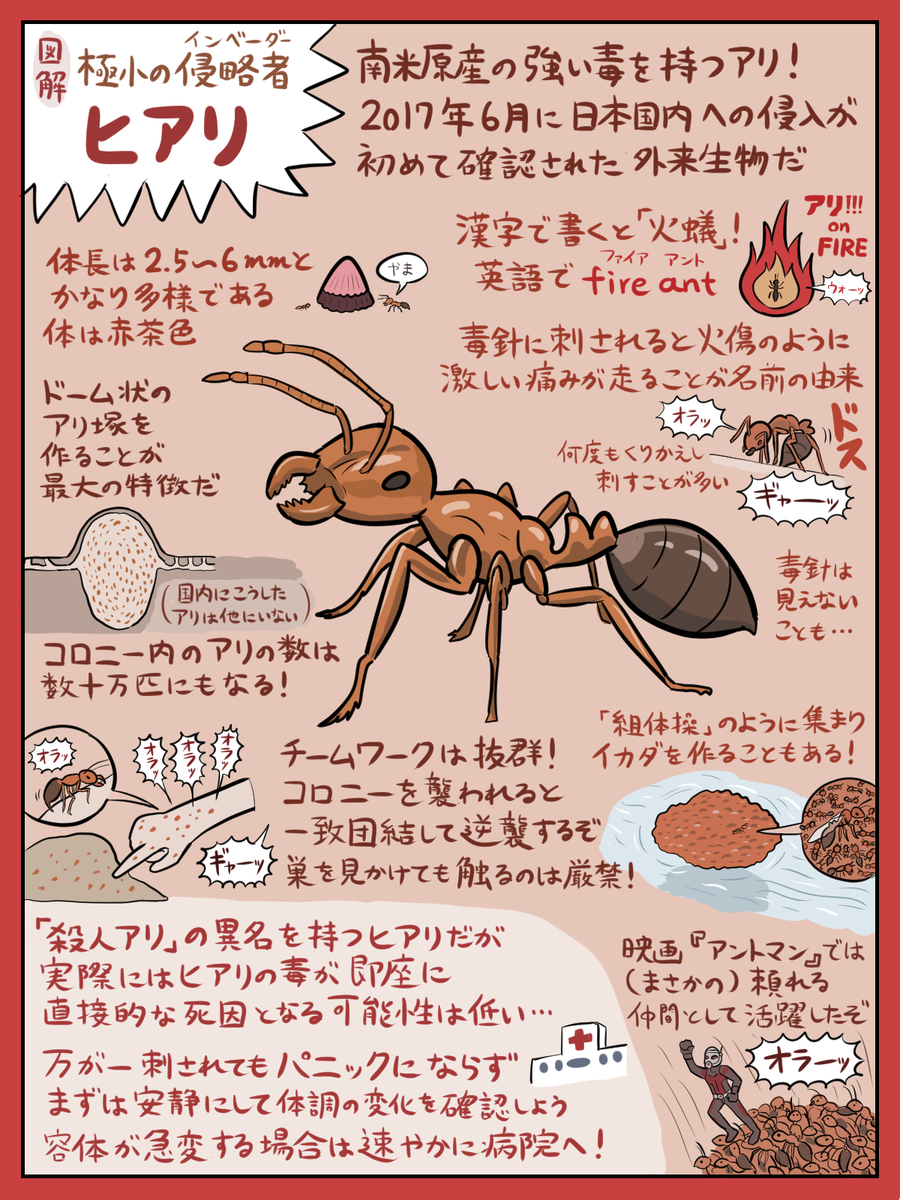 図解
インベーダー
極小の侵略者
ヒアリ
南米原産の強い毒を持つアリ!
2017年6月に日本国内への侵入が
初めて確認された外来生物だ
漢字で書くと「火蟻」!
ファイア アント
英語で fire ant
アリ!!!
on
FIRE
ウォーッ
体長は2.5〜6mmと
かなり多様である
体は赤茶色
やま
毒針に刺されると火傷のように
激しい痛みが走ることが名前の由来
オラッ
ドス
何度もくりかえし
刺すことが多い
ギャーーッ
ドーム状の
アリ塚を
作ることが
最大の特徴だ
(国内にこうした
アリは他にいない)
毒針は
見えない
ことも…
コロニー内のアリの数は
数十万匹にもなる!
オラッ
オラッ
オラッ
オラッ
ギャーッ
チームワークは抜群!
コロニーを襲われると
一致団結して逆襲するぞ
巣を見かけても触るのは厳禁!
「組体操」のように集まり
イカダを作ることもある!
「殺人アリ」の異名を持つヒアリだが
実際にはヒアリの毒が即座に
直接的な死因となる可能性は低い…
万が一刺されてもパニックにならず
まずは安静にして体調の変化を確認しよう
容体が急変する場合は速やかに病院へ!
映画『アントマン』では
(まさかの)頼れる
仲間として活躍したぞ
オラーッ